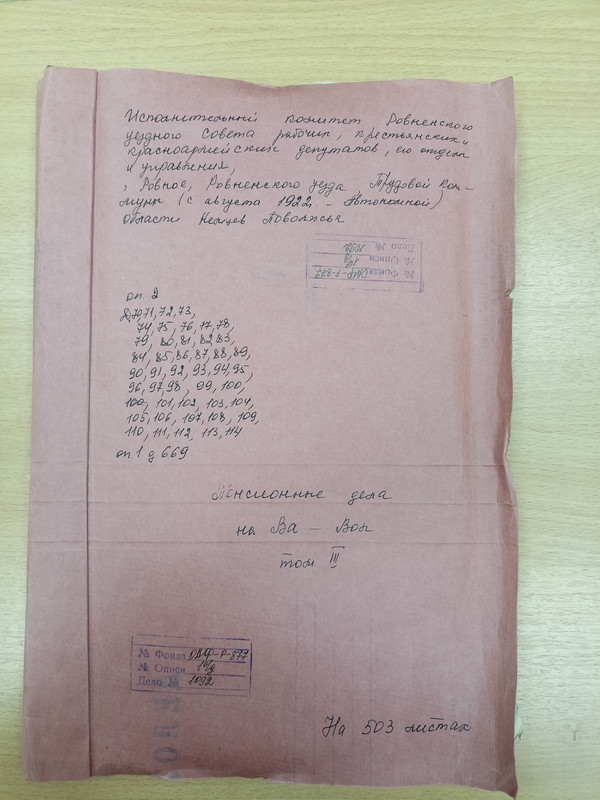 Исполнительный комитет Ровненского
уездного Совета рабочих, крестьянских и
красноармейских депутатов, его отделы
и управления,
с. Ровное, Ровненского уезда, Трудовой Ком-
муны (с августа 1922 - Автономной)
области Немцев Поволжья
№ Фонда ОАФ-Р-877
№ Описи 1л/д
Дело № 1092
оп. 2
д. 70, 71, 72, 73,
74, 75, 76, 77, 78,
79, 80, 81, 82, 83,
84, 85, 86, 87, 88, 89,
90, 91, 92, 93, 94, 95,
96, 97, 98, 99, 100,
100, 101, 102, 103, 104,
105, 106, 107, 108, 109,
110, 111, 112, 113, 114
оп 1 д 669
Пенсионные дела
на Ва - Вол
том III
№ Фонда ОАФ-Р-877
№ Описи 1л/д
Дело № 1092
На 503 листах